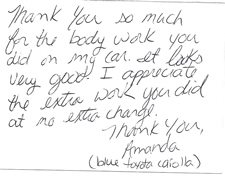 Thank You so much
for the body work you
did on my car. It looks
very good. I appreciate
the extra work you did
at no extra charge.
Thank You,
Amanda
(blue toyota carolla)